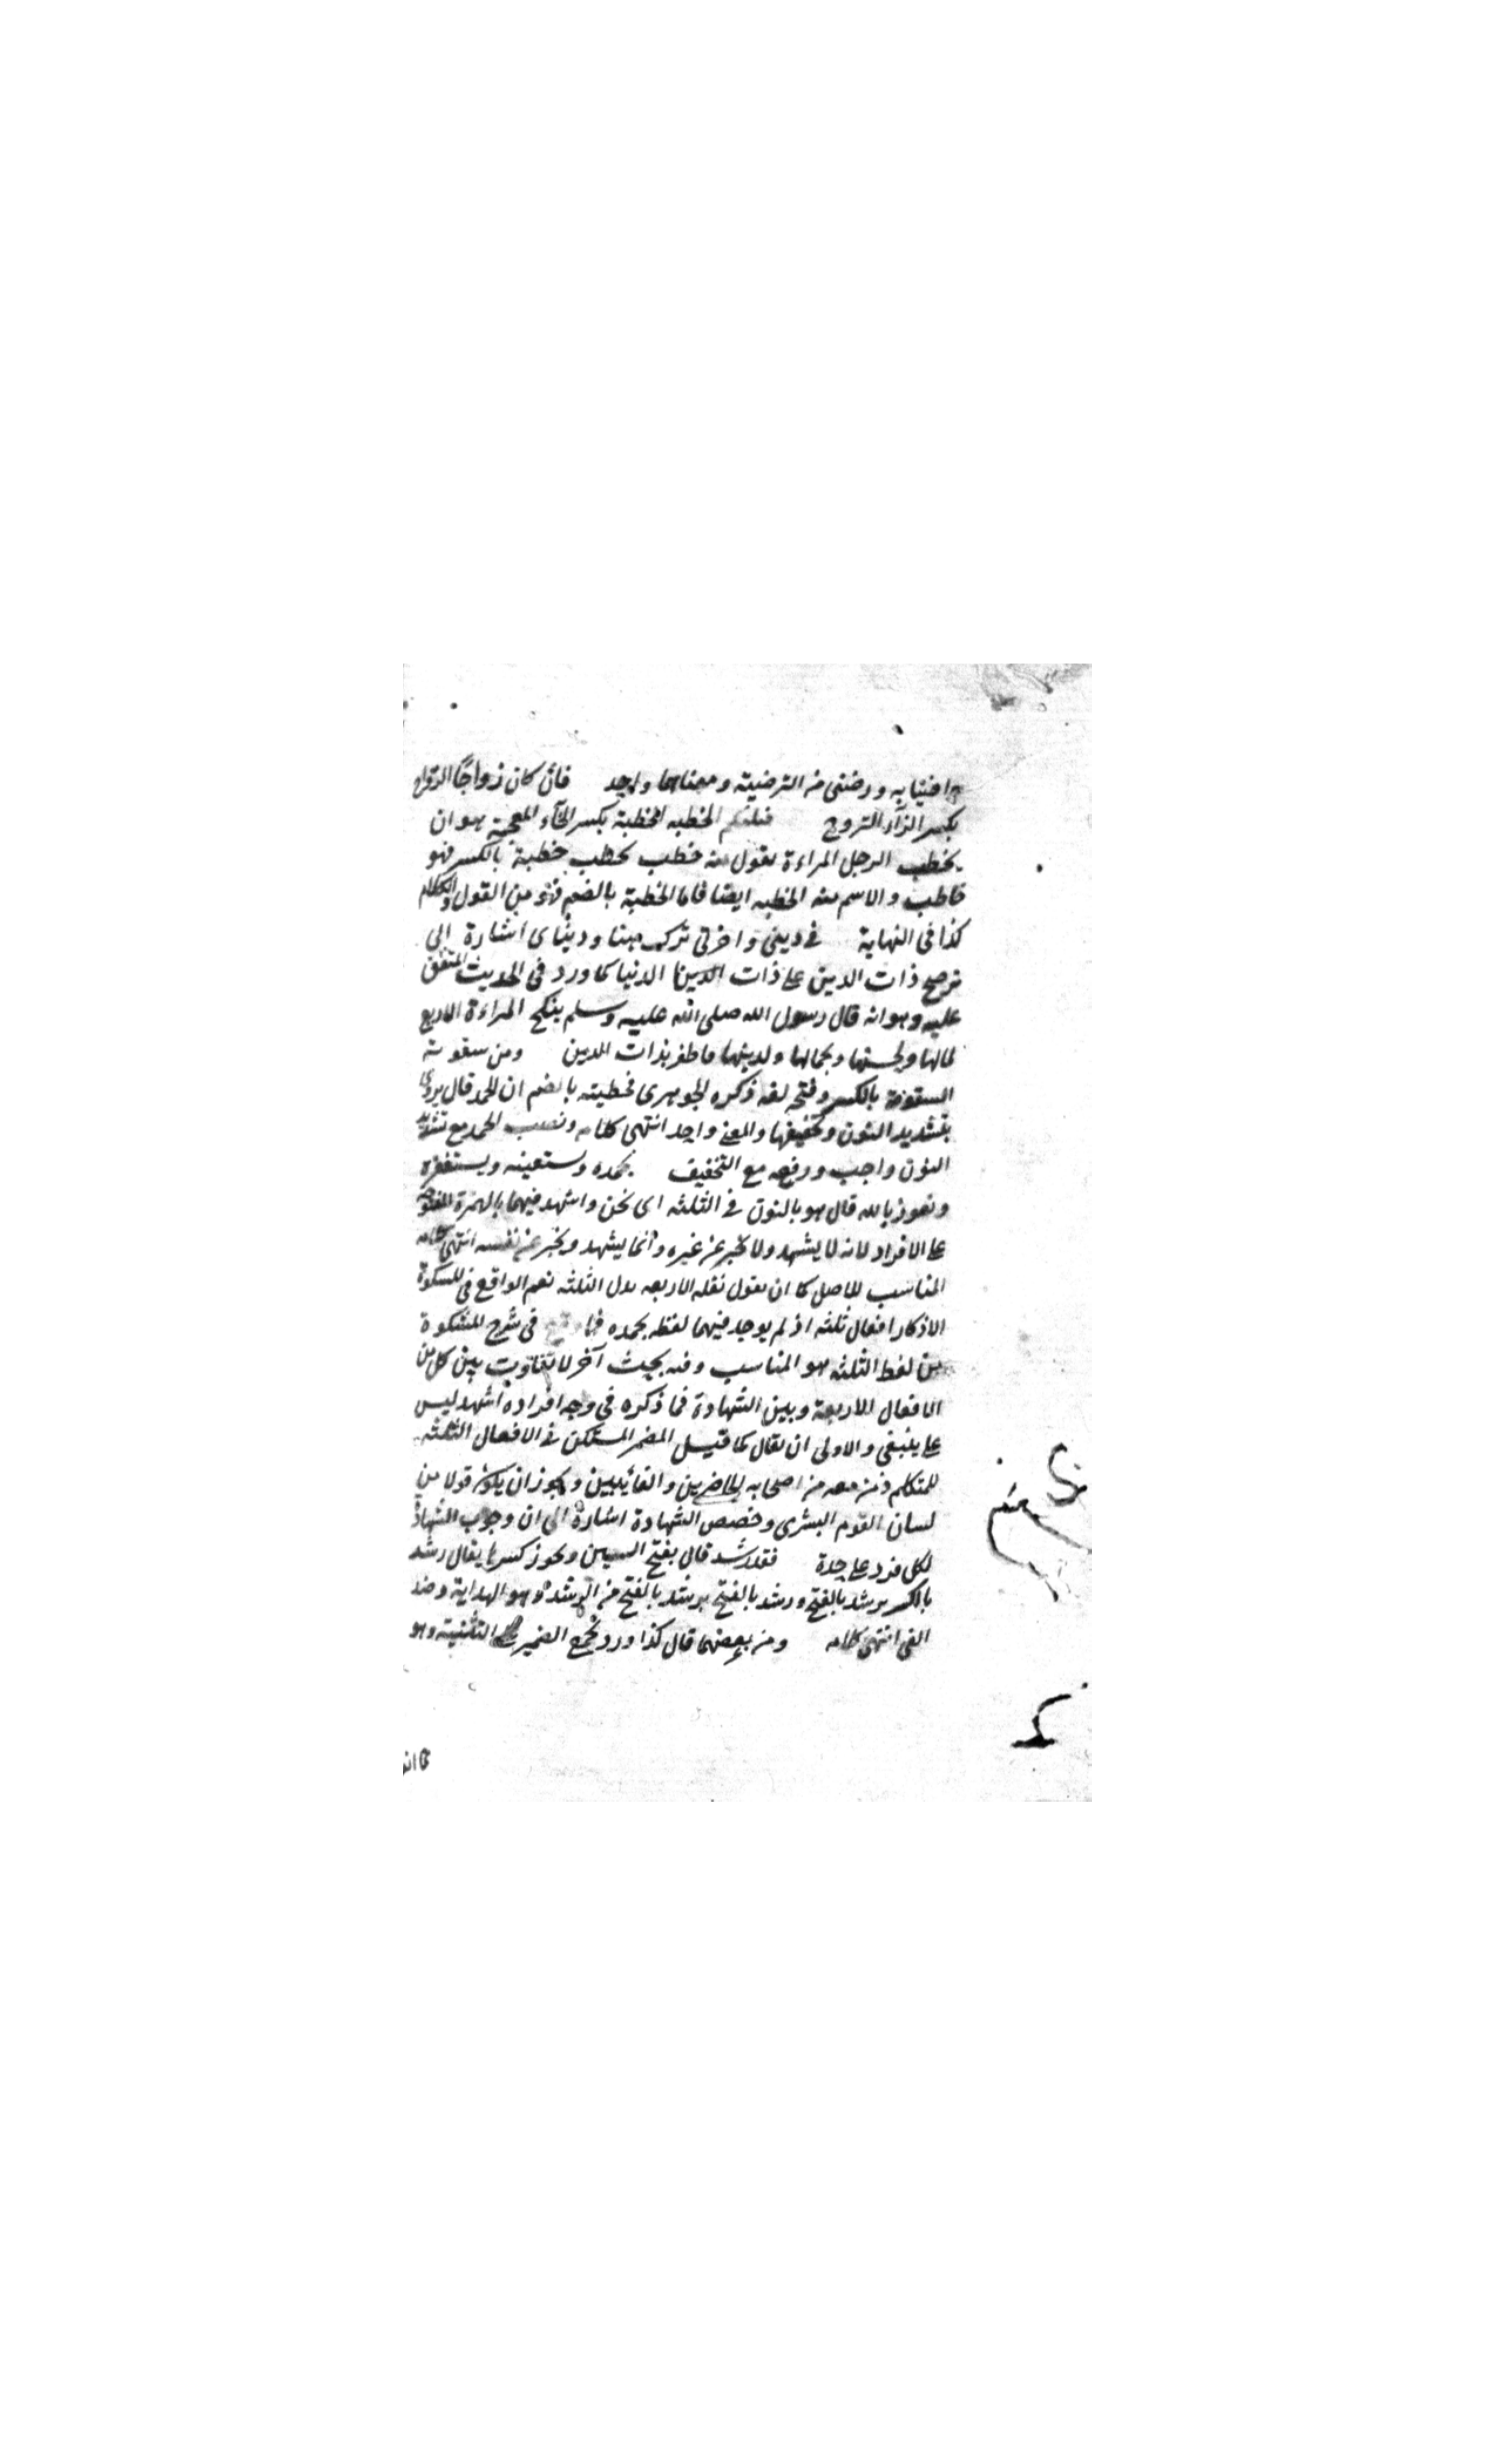 راضيا به ورضنى من الترضية ومعناهما واحد فان كان زواجًا الزواج
بكسر الزآء التزوج فليكتم الخطبه الخطبة بكسر الخآء المعجمة هو ان
يخطب الرجل المراءة يقول منه خطب يخطب خطبة بالكسر فهو
خاطب والاسم منه الخطبه ايضا فاما الخطبة بالضم فهو من القول والكلام
كذا فى النهاية فى دينى واخرتى ترك هنا ودنياى اشارة الى
ترجيح ذات الدين على ذات الدنيا كما ورد فى الحديث المتفق
عليه وهو انه قال رسول الله صلى الله عليه وسلم ينكح المراءة لاربع
لمالها ولحسنها وجمالها ولدينها فاظفر بذات الدين ومن سقوته
السقوة بالكسر وفتحه لغه ذكره الجوهرى فخطبته بالضم ان الحمد قال يروى
بتشديد النون وتخفيفها والمعنى واحد انتهى كلامه ونصب الحمد مع تشديد
النون واجب ورفعه مع التخفيف نحمده ونستعينه ونستغفره
ونعوذ بالله قال هو بالنون فى الثلثه اى نحن واشهد فيهما بالهمزة المفتوحة
على الافراد لانه لا يشهد ولا يخبر عن غيره وانما يشهد ويخبر عن نفسه انتهى كلامه
المناسب للاصل كما ان يقول نقله الاربعه بدل الثلثه نعم الواقع فى المشكوة
الاذكار افعال ثلثه اذ لم يوجد فيهما لفظه نحمده فما فى شرح المشكوة
من لفظ الثلثه هو المناسب وفيه بحث آخر لا تفاوت بين كل من
الافعال الاربعة وبين الشهادة فما ذكره فى وجه افراده اشهد ليس
على ينبغى والاولى ان يقال كما قيل المضمر المستكن فى الافعال الثلثه
للمتكلم ومن معه من اصحابه الحاضرين والغائبين ويجوز ان يكون قولا من
لسان القوم البشرى وخصص الشهادة اشارة الى ان وجوب الشهادة
لكل فرد على حدة فقد رشد قال بفتح السين ويجوز كسرها يقال رشد
بالكسر يرشد بالفتح ورشد بالفتح يرشد بالفتح من الرشد وهو الهداية وضد
الغى انتهى كلامه ومن يعصهما قال كذا ورد بجمع الضمير على التثنية وهو